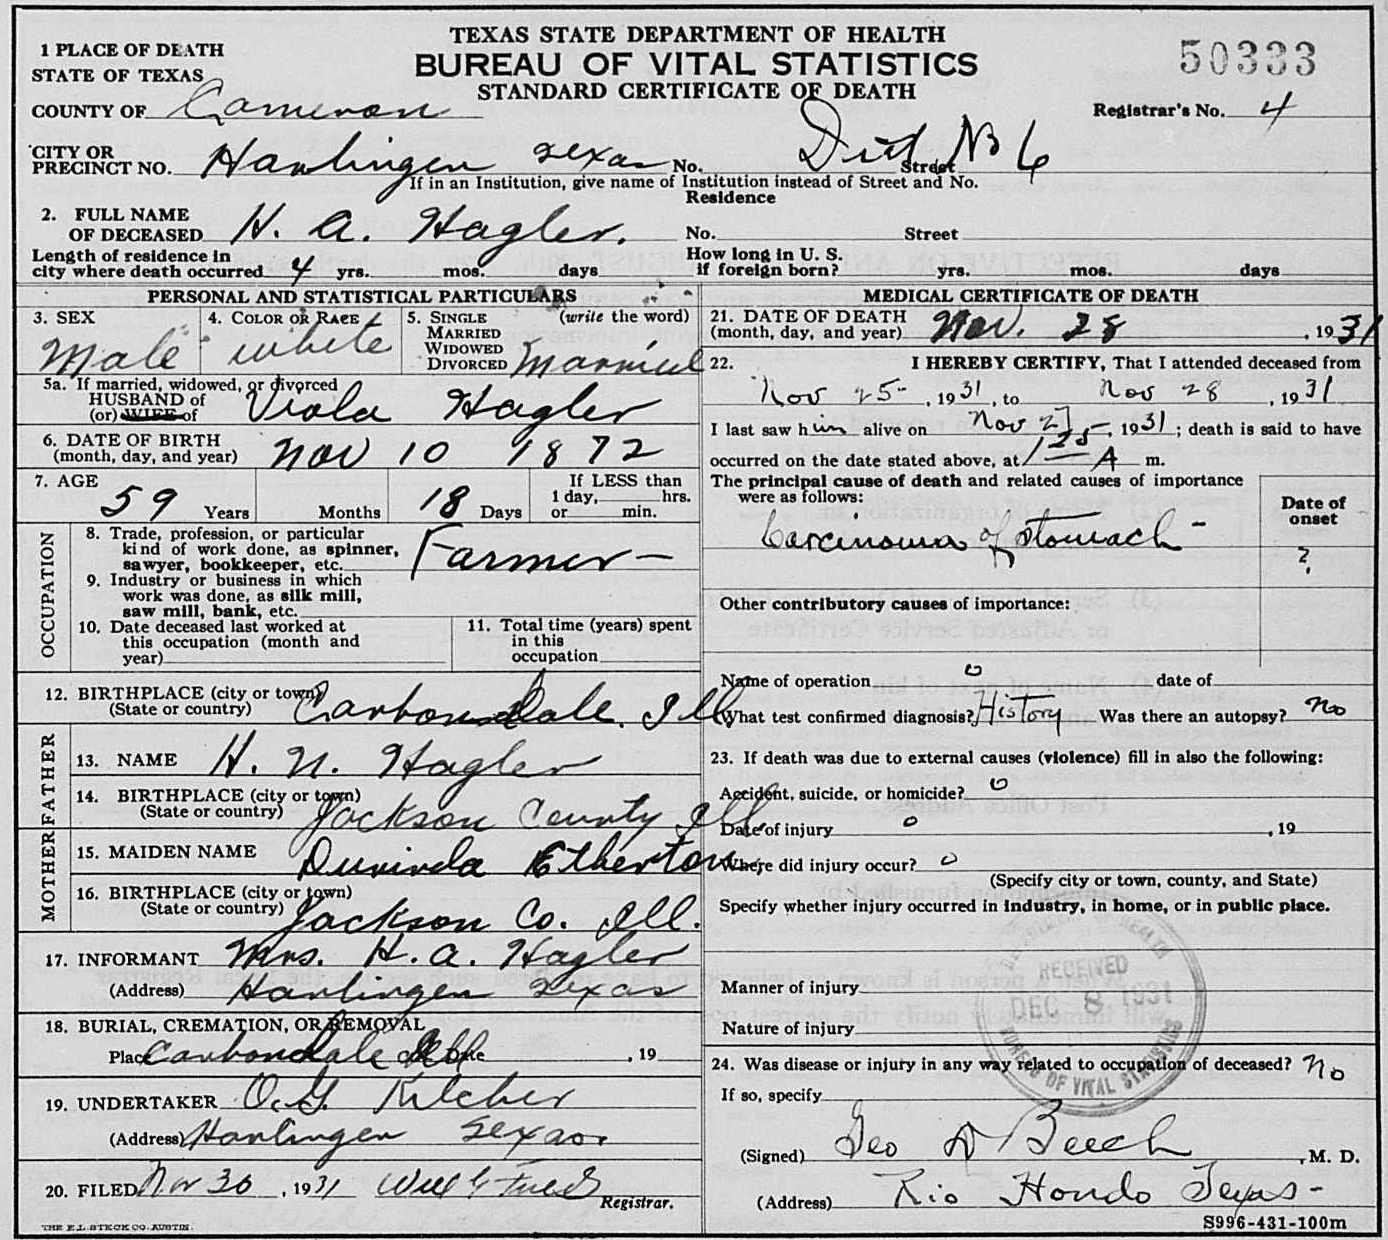 TEXAS STATE DEPARTMENT OF HEALTH
BUREAU OF VITAL STATISTICS
STANDARD CERTIFICATE OF DEATH
50333
Registrar's No. 4
1 PLACE OF DEATH
STATE OF TEXAS
COUNTY OF Cameron
CITY OR
PRECINCT NO. Harlingen Texas No. Street No 6
If in an Institution, give name of Institution instead of Street and No.
Residence
2. FULL NAME
OF DECEASED H. A. Hagler. No. Street
Length of residence in
city where death occurred 4 yrs. mos. days
How long in U. S.
if foreign born? yrs. mos. days
PERSONAL AND STATISTICAL PARTICULARS
3. SEX
Male
4. COLOR OR RACE
White
5. SINGLE (write the word)
MARRIED
WIDOWED
DIVORCED Married
5a. If married, widowed, or divorced
HUSBAND of
(or) WIFE of Viola Hagler
6. DATE OF BIRTH
(month, day, and year) Nov 10 1872
7. AGE
59 Years Months 18 Days
If LESS than
1 day, hrs.
or min.
OCCUPATION
8. Trade, profession, or particular
kind of work done, as spinner,
sawyer, bookkeeper, etc. Farmer
9. Industry or business in which
work was done, as silk mill,
saw mill, bank, etc.
10. Date deceased last worked at
this occupation (month and
year)
11. Total time (years) spent
in this
occupation
12. BIRTHPLACE (city or town)
(State or country) Carbondale, Ill
FATHER
13. NAME H. N. Hagler
14. BIRTHPLACE (city or town)
(State or country) Jackson County Ill
MOTHER
15. MAIDEN NAME Etherton
16. BIRTHPLACE (city or town)
(State or country) Jackson Co. Ill.
17. INFORMANT Mrs. H. A. Hagler
(Address) Harlingen Texas
18. BURIAL, CREMATION, OR REMOVAL
Place Carbondale Ill Date , 19
19. UNDERTAKER O. G. Kilcher
(Address) Harlingen Texas.
20. FILED Nov 30 , 1931 Registrar.
THE E.L. STECK CO. AUSTIN.
MEDICAL CERTIFICATE OF DEATH
21. DATE OF DEATH
(month, day, and year) Nov. 28 , 1931
22. I HEREBY CERTIFY, That I attended deceased from
Nov 25 , 1931, to Nov 28 , 1931
I last saw him alive on Nov 27 , 1931; death is said to have
occurred on the date stated above, at A m.
The principal cause of death and related causes of importance
were as follows:
Date of
onset
Carcinoma of stomach - ?
Other contributory causes of importance:
Name of operation 0 date of
What test confirmed diagnosis? History Was there an autopsy? No
23. If death was due to external causes (violence) fill in also the following:
Accident, suicide, or homicide? 0
Date of injury 0 , 19
Where did injury occur? 0
(Specify city or town, county, and State)
Specify whether injury occurred in industry, in home, or in public place.
Manner of injury
Nature of injury
RECEIVED
DEC 8 1931
BUREAU OF VITAL STATISTICS
24. Was disease or injury in any way related to occupation of deceased? No
If so, specify
(Signed) Geo D Beech , M. D.
(Address) Rio Hondo Texas -
S996-431-100m